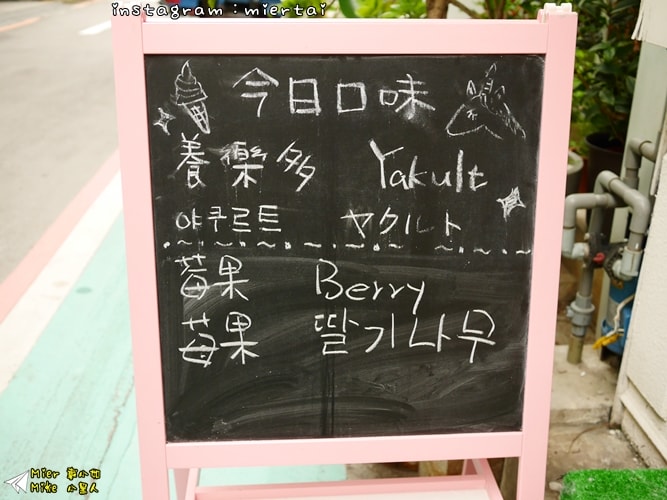 instagram：miertai
今日口味
養樂多 Yakult
야쿠르트 ヤクルト
莓果 Berry
苺果 딸기나무
Mier 
Mike 小星人